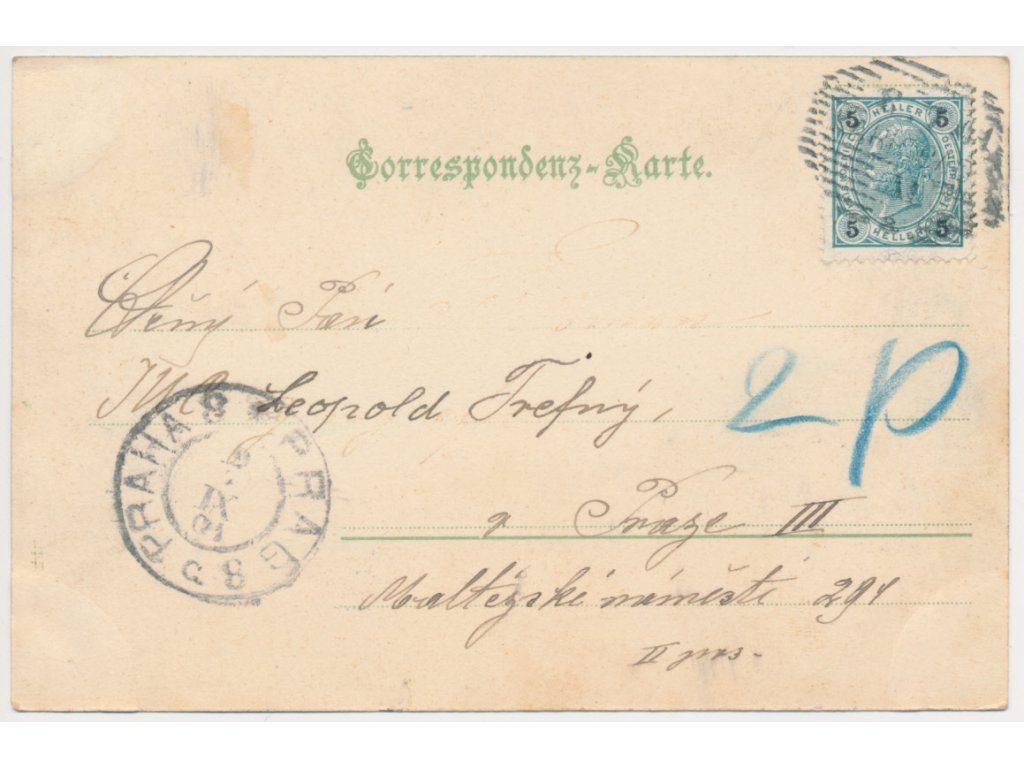 Correspondenz-Karte.
5 HELLER 5
5 HELLER 5
Ctěný Pán
Leopold Trefný,
2 p
v Praze III
Maltézské náměstí 294
II pos.
PRAHA 8 PRAG 8
IX